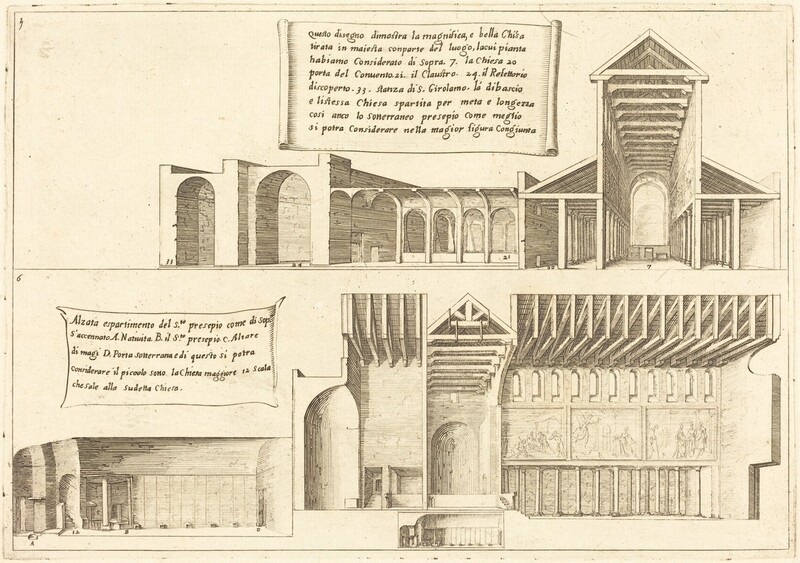 4
Questo disegno dimostra la magnifica, e bella Chisa
tirata in maiesta conparte del luogo, lacui pianta
habiamo Considerato di Sopra. 7. la Chiesa 20
porta del Conuento. 21. il Claustro. 24. il Refettorio
discoperto. 33. stanza di S. Girolamo. la dibascio
e listessa Chiesa spartita per meta e longezza
cosi anco lo soterraneo presepio come meglio
si potra Considerare nella magior figura Congiunta
33
24
21
20
7
6
5
Alzata espartimento del S.to presepio come di Sopr.
s'accennato A. Natiuita B. il S.to presepio C. Altare
di magi D. Porta soterranea e di questo si potra
considerare il piccolo sono la Chiesa maggiore 12 Scala
che sale alla sudetta Chiesa.
A
12
B
D